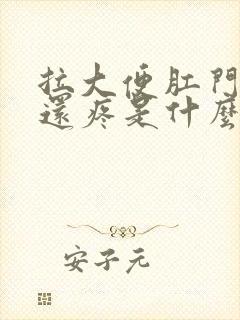 拉大便肛門
還疼是什麼
安子元